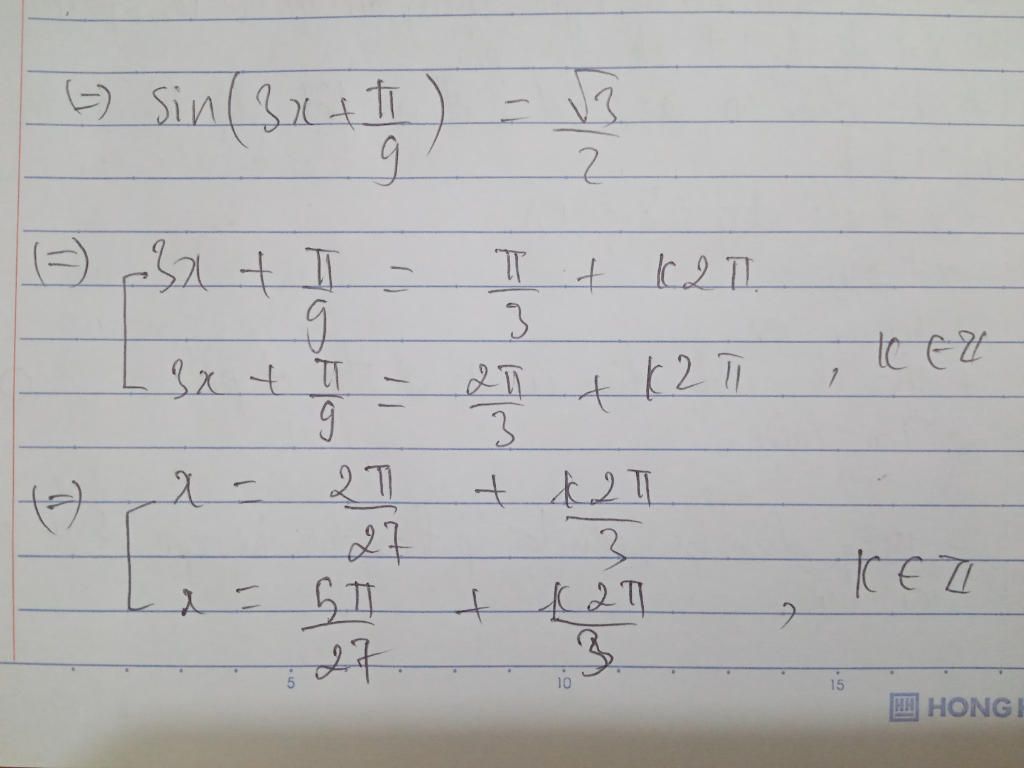 (=) sin(3x + π/9) = √3/2
(=) [ 3x + π/9 = π/3 + k2π
3x + π/9 = 2π/3 + k2π , k ∈ ℤ
(=) [ x = 2π/27 + k2π/3
x = 5π/27 + k2π/3 , k ∈ ℤ
5 10 15
HH HONG